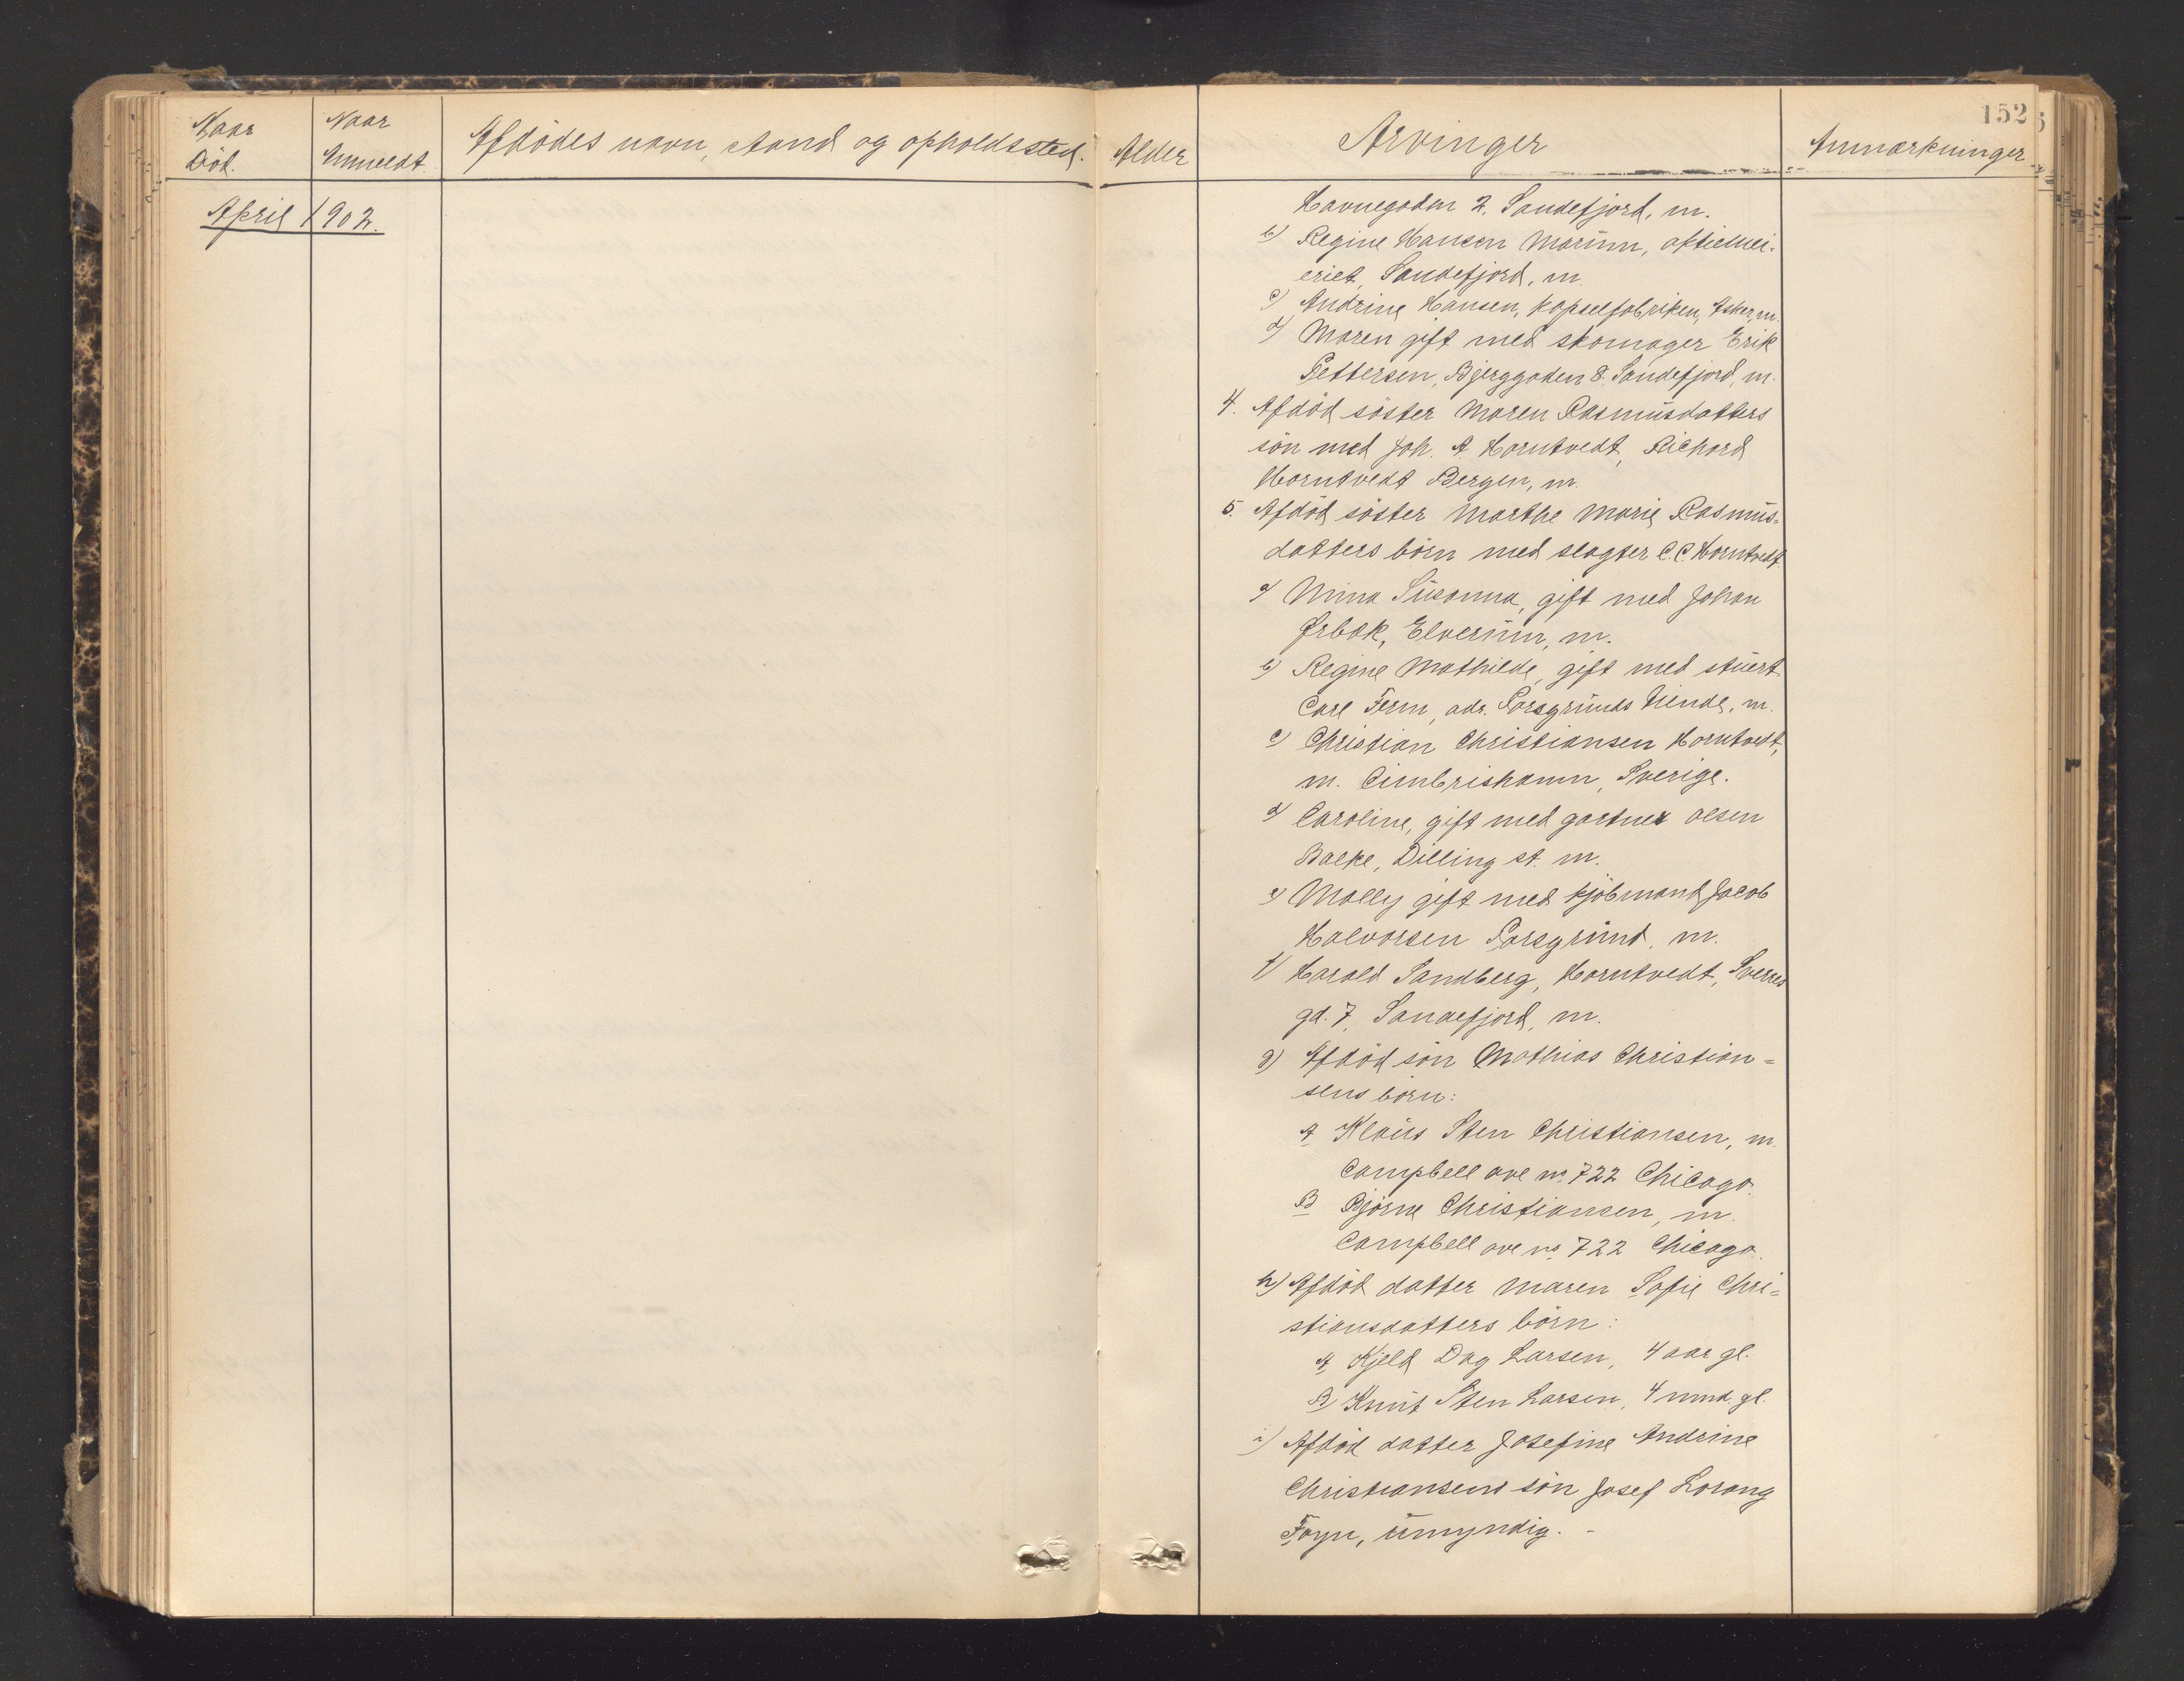 152
Naar Död.
Naar Anmeldt
Afdödes navn, stand og opholdssted.
Alder
Arvinger
Anmærkninger
April 1902.
Havnegaden 2, Sandefjord, m.
b) Regine Hansen Marum, aktiemei-
eriet, Sandefjord, m.
c) Andrine Hansen, kapselfabriken, Asker, m.
d) Maren gift med skomager Erik
Pettersen, Bjerggaden 8. Sandefjord, m.
4. Afdöd söster Maren Rasmusdatters
sön med Joh. A. Horntvedt, Richard
Horntvedt Bergen, m.
5. Afdöd söster Marthe Marie Rasmus-
datters börn med slagter C.C. Horntvedt
a) Mina Susanna, gift med Johan
Ørbæk, Elverum, m.
b) Regine Mathilde, gift med stuert
Carl Ferm, adr. Porsgrunds Minde, m.
c) Christian Christiansen Horntvedt,
m. Cimbrishamn, Sverige.
d) Caroline, gift med gartner Olsen
Balke, Dilling st. m.
e) Molly gift med kjöbmand Jacob
Halvorsen Porsgrund, m.
f) Harald Sandberg, Horntvedt, Sverres
gd. 7, Sandefjord, m.
g) Afdöd sön Mathias Christian=
sens börn:
A Klaus Sten Christiansen, m.
Campbell ave no. 722 Chicago.
B Bjørne Christiansen, m.
Campbell ave no. 722 Chicago.
h) Afdöd datter Maren Sofie Chri=
stiansdatters börn:
A, Kjeld Dag Larsen, 4 aar gl.
B) Knut Sten Larsen, 4 mnd. gl.
i) Afdöd datter Josefine Andrine
Christiansens sön Josef Lorang
Foyn, umyndig. -